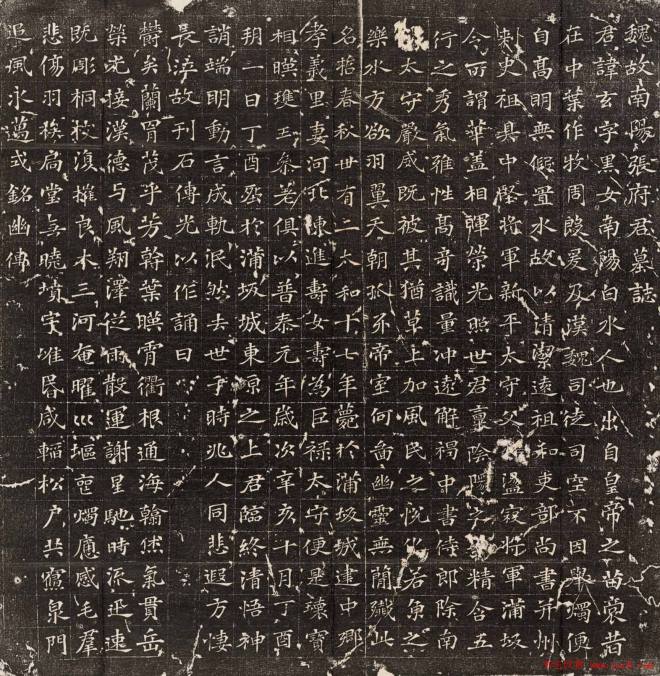 魏故南陽張府君墓誌
君諱玄字黑女南陽白水人也出自皇帝之苗裔昔
在中葉作牧周殷爰及漢魏司徒司空不因舉燭便
自高明無假置水故以清潔遠祖和吏部尚書并州
刾史祖具中堅將軍新平太守父盪寇將軍蒲坂
令所謂華蓋相暉榮光照世君稟陰陽之精含五
行之秀氣雅性高奇識量沖遠解褐中書侍郎除南
太守嚴威既被其猶草上加風民之悅化若魚之
樂水方欲羽翼天朝抓牙帝室何啚幽靈無簡殲此
名喆春秋卅有二太和十七年薨於蒲坂城建中鄉
孝義里妻河北陳進壽女壽為巨祿太守便是瓌寶
相暎瓊玉參差俱以普泰元年歲次辛亥十月丁酉
朔一日丁酉塟於蒲坂城東原之上君臨終清悟神
誚端明動言成軌泯然去世于時兆人同悲遐方悽
長泣故刊石傳光以作誦曰
欝矣蘭胄茂乎芳幹葉暎霄衢根通海翰倐氣貫岳
榮光接漢德与風翔澤從雨散運謝星馳時流迅速
既彫桐枝復摧良木三河奄曜巛塸寔燭痛感毛羣
悲傷羽族扃堂無曉墳宇唯昏咸輀松戶共寢泉門
追風永邁式銘幽傳